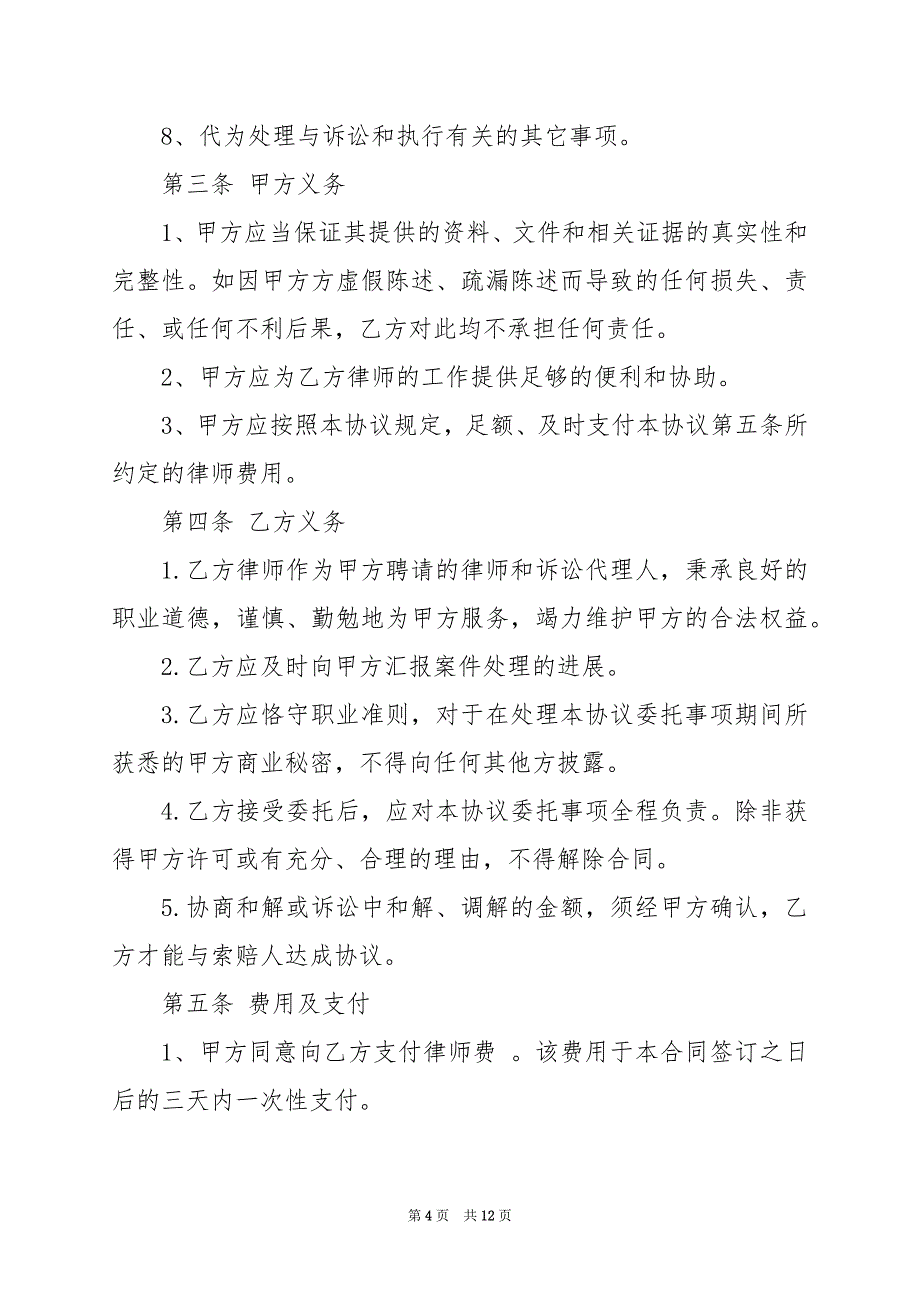 8、代为处理与诉讼和执行有关的其它事项。
第三条 甲方义务
1、甲方应当保证其提供的资料、文件和相关证据的真实性和
完整性。如因甲方方虚假陈述、疏漏陈述而导致的任何损失、责
任、或任何不利后果，乙方对此均不承担任何责任。
2、甲方应为乙方律师的工作提供足够的便利和协助。
3、甲方应按照本协议规定，足额、及时支付本协议第五条所
约定的律师费用。
第四条 乙方义务
1.乙方律师作为甲方聘请的律师和诉讼代理人，秉承良好的
职业道德，谨慎、勤勉地为甲方服务，竭力维护甲方的合法权益。
2.乙方应及时向甲方汇报案件处理的进展。
3.乙方应恪守职业准则，对于在处理本协议委托事项期间所
获悉的甲方商业秘密，不得向任何其他方披露。
4.乙方接受委托后，应对本协议委托事项全程负责。除非获
得甲方许可或有充分、合理的理由，不得解除合同。
5.协商和解或诉讼中和解、调解的金额，须经甲方确认，乙
方才能与索赔人达成协议。
第五条 费用及支付
1、甲方同意向乙方支付律师费 。该费用于本合同签订之日
后的三天内一次性支付。
第 4 页 共 12 页